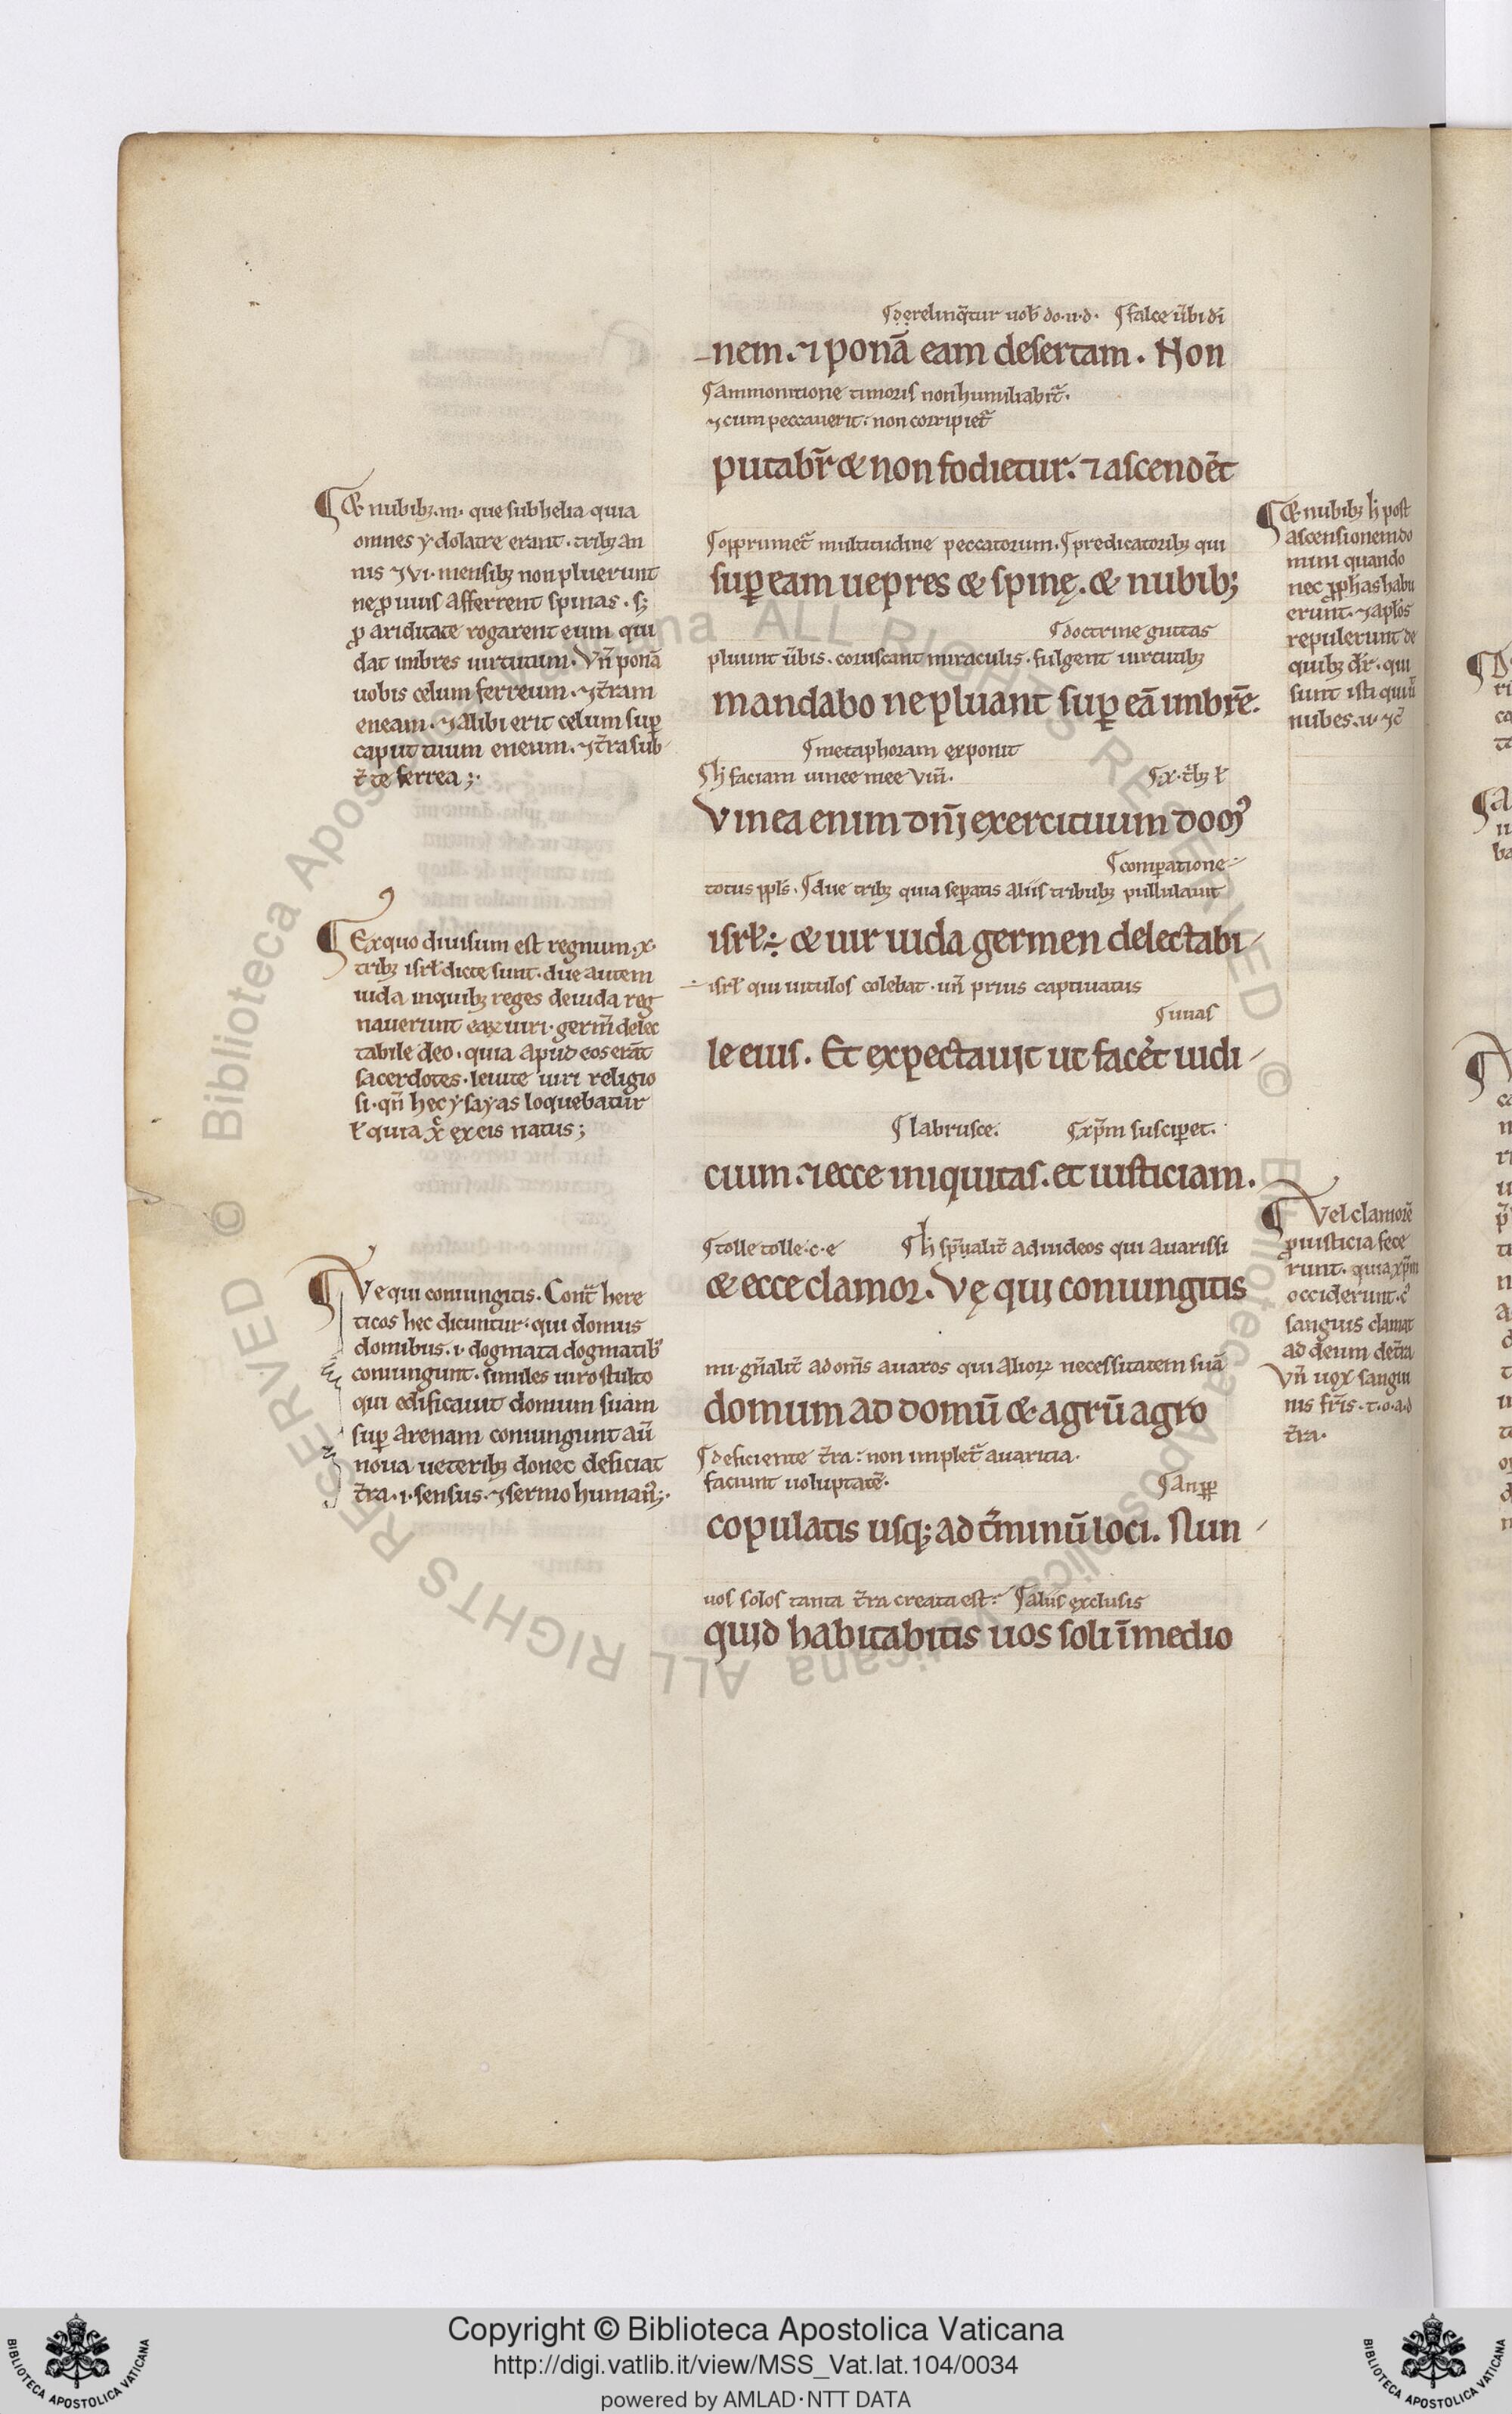 ¶derelinq̄tur uob̄ do·u·d· ¶falce ūbi dī
nem.⁊ ponā eam desertam. Non
¶ammonitione timoris non humiliabit᷑.
⁊ cum peccauerit: non corripiet᷑
putabr̄ & non fodietur.⁊ ascendēt
¶opprimet᷑ multitudine peccatorum. ¶predicatorib; qui
sup̄ eam uepres & spinę. & nubib;
¶doctrine guttas
pluunt ūbis. coruscant miraculis. fulgent uirtutib;
mandabo ne pluant sup̄ eā imbrē.
¶metaphoram exponit
faciam uinee mee
Vinea enim dn̄i exercituum dom᷒
¶comparatione
totus ppl̄s. ¶due trib; quia separatis aliis tribub; pullulauit
isrł: & uir iuda germen delectabi
isrł qui uitulos colebat. un̄ prius captiuatus
¶uuas
le eius. Et expectaui ut facēt iudi
¶labrusce. ¶xp̄m susciperet.
cium.⁊ ecce iniquitas. et iusticiam.
¶tolle tolle.c.e ad iudeos qui auarissi
& ecce clamor. Vę qui coniungitis
mi. gn̄alit᷑ ad om̄s auaros qui alioꝝ necessitatem suā
domum ad domū & agrū agro
¶deficiente t̄ra: non implet᷑ auaritia.
faciunt uoluptatē.
copulatis usq; ad t̄minū loci. Nun
uos solos tanta t̄ra creata est: ¶aliis exclusis
quid habitabitis uos soli ī medio
¶& nubib;.m. que sub helia quia
omnes ydolatre erant. trib; an
nis ⁊ vi. mensib; non pluerunt
ne ꝓ uuis afferrent spinas. s;
ꝓ ariditate rogarent eum qui
dat imbres uirtutum. Vn̄ ponā
uobis celum ferreum.⁊ t̄ram
eneam.⁊ alibi erit celum sup̄
caput tuum eneum.⁊ t̄ra sub
t̄ te ferrea;
¶Ex quo diuisum est regnum.x.
trib; isrł dicte sunt. due autem
iuda in quib; reges de iuda reg
nauerunt uiri. germ̄ delec
tabile deo. quia apud eos erāt
sacerdotes. leuite uiri religio
si. qn̄ hec ysayas loquebatur
ł quia ex eis natus;
¶Ve qui coniungitis. Cont᷑ here
ticos hec dicuntur: qui domus
domibus.i. dogmata dogmatib᷒
coniungunt. similes uiro stulto
qui edificauit domum suam
sup̄ arenam coniungunt aū
noua ueterib; donec deficiat
t̄ra.i. sensus.⁊ sermo human᷒;
¶& nubib; post
ascensionem do
mini quando
nec ꝓphas habu
erunt.⁊ apl̄os
repulerunt de
quib; dr̄. qui
sunt isti qui ū
nubes.u.⁊c̄
¶Vel clamorē
ꝓ iusticia fece
runt. quia xp̄m
occiderunt.
sanguis clamat
ad deum de t̄ra
Vn̄ uox sangui
nis fr̄is.t.o.a.d
t̄ra.
Copyright © Biblioteca Apostolica Vaticana
http://digi.vatlib.it/view/MSS_Vat.lat.104/0034
powered by AMLAD·NTT DATA
BIBLIOTECA APOSTOLICA VATICANA
BIBLIOTECA APOSTOLICA VATICANA
© Biblioteca Apostolica Vaticana ALL RIGHTS RESERVED
© Biblioteca Apostolica Vaticana ALL RIGHTS RESERVED